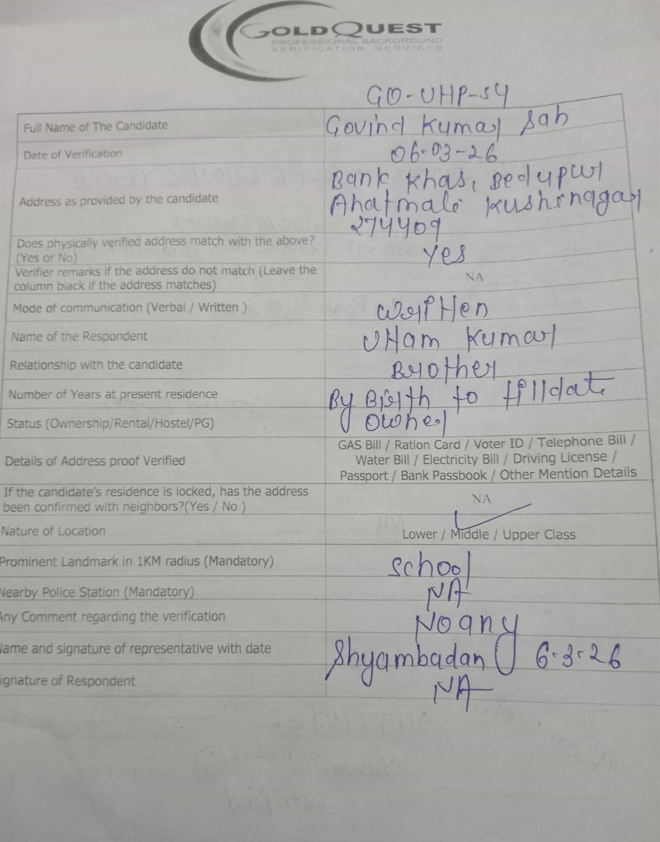 GOLDQUEST
PROFESSIONAL BACKGROUND
VERIFICATION SERVICES
GQ-UHP-54
Full Name of The Candidate Govind Kumar Sah
Date of Verification 06-03-26
Address as provided by the candidate Bank Khas, Bedupur
Ahatmali Kushinagar
274409
Does physically verified address match with the above?
(Yes or No) Yes
Verifier remarks if the address do not match (Leave the
column black if the address matches) NA
Mode of communication (Verbal / Written )
Name of the Respondent Kumar
Relationship with the candidate Brother
Number of Years at present residence By Birth to tilldate
Status (Ownership/Rental/Hostel/PG) Owner
Details of Address proof Verified GAS Bill / Ration Card / Voter ID / Telephone Bill /
Water Bill / Electricity Bill / Driving License /
Passport / Bank Passbook / Other Mention Details
If the candidate's residence is locked, has the address
been confirmed with neighbors?(Yes / No ) NA
Nature of Location Lower / Middle / Upper Class
Prominent Landmark in 1KM radius (Mandatory) School
Nearby Police Station (Mandatory) NA
Any Comment regarding the verification No any
Name and signature of representative with date Shyambadan 6.3.26
Signature of Respondent NA